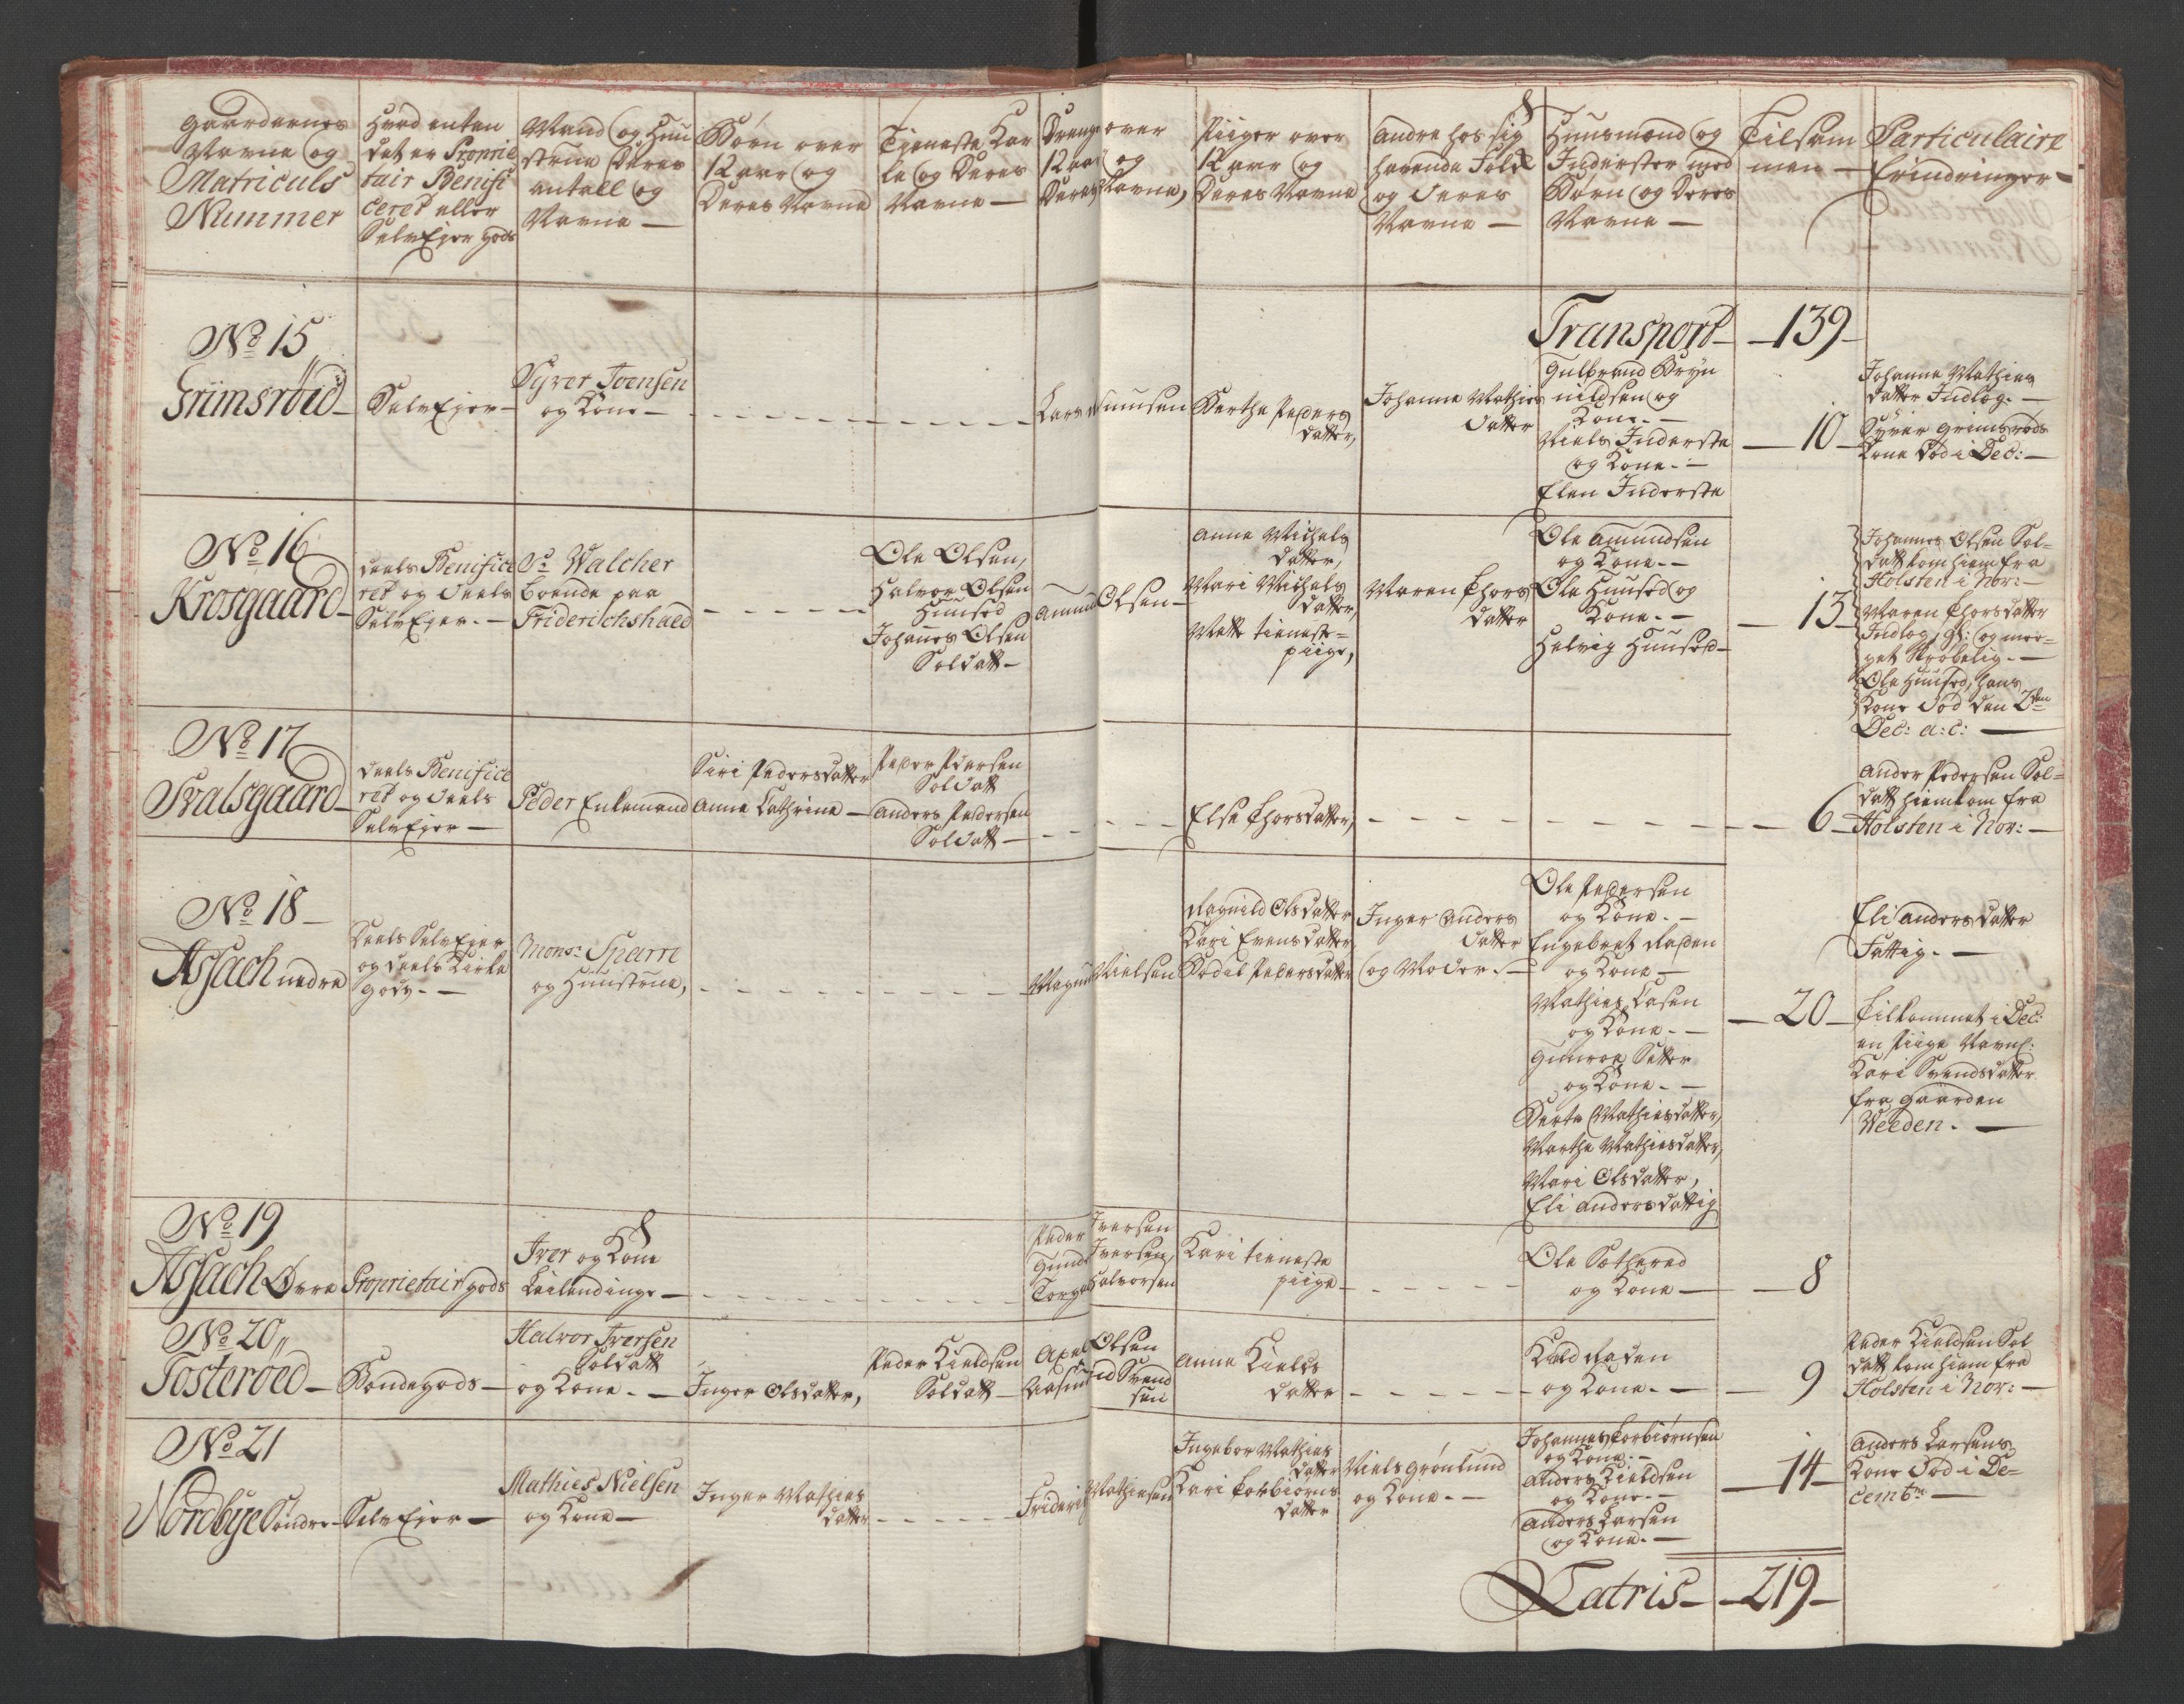 Gaardernes
Navne og
Matriculs
Nummer
Hvad enten
det er Proprie
tair Benifi
ceret eller
SelvEjer Gods
Mand og Huu
struers Deres
antall og
Navne —
Børn over
12 aar og
Deres Navne
Tieneste Kar
le og Deres
Navne —
Drenge over
12 aar og
Deres Navne,
Piiger over
12 aar og
Deres Navne
Andre hos sig
havende Folk
og Deres
Navne —
Huusmænd og
Inderster med
Børn og Deres
Navne —
Tilsam
men —
Particulaire
Erindringer —
Transport — 139 —
No 15
Grimsrøed —
SelvEjer —
Syver Joensen
og Kone —
Lars
Berthe Peders
datter,
Johanne Mathies
datter
Gulbrand Bryn
nildsen og
Kone. —
Niels Inderste
og Kone. —
Elen Inderste
— 10 —
Johanne Mathies
datter Indlog. —
Syver Grimsrøds
Kone død i Dec: —
No 16
Krosgaard —
deels Benifice
ret og deels
SelvEjer. —
Sr. Walcher
boende paa
Friderichshald
Ole Olsen,
Halvor Olsen
Huused
Johanes Olsen
Soldatt —
Amund Olsen —
Anne Michels
datter,
Mari Michels
datter,
Mette tieneste-
piige,
Maren Thors
datter
Ole Amundsen
og Kone. —
Ole Huused og
Kone. —
Helvig Huused —
— 13 —
Johannes Olsen Sol-
datt kom hiem fra
Holsten i Nov: —
Maren Thorsdatter
Indlog, gl: og me-
get skrøbelig. —
Ole Huused, hans
Kone død den 2den
Dec: a: c: —
No 17
Svalsgaard —
deels Benifice
ret og deels
SelvEjer —
Peder Enkemand
Siri Pedersdatter
Anne Cathrine —
Peder Pedersen
Soldatt
Anders Pedersen
Soldatt —
Else Thorsdatter,
— 6 —
Ander Pedersen Sol-
datt hiemkom fra
Holsten i Nov: —
No 18 —
Asach nedre
Deels SelvEjer
og deels Kirke
Gods. —
Monsr. Sparre
og Huustrue,
Magnu Nielsen
Ragnild Olsdatter
Kari Evensdatter
Bodil Pedersdatter
Inger Anders
datter
og Moder. —
Ole Pedersen
og Kone. —
Engebret Røden
og Kone —
Mathies Casen
og Kone. —
Gunroe Sætter
og Kone. —
Berte Mathiesdatter,
Marthe Mathiesdatter,
Mari Olsdatter,
Eli Andersdattig
— 20 —
Eli Andersdatter
Fattig. —
Tilkommet i Dec:
en Piige Navnl:
Kari Svendsdatter
fra Gaarden
Weeden. —
No 19
Asach Øvre
Proprietair gods
Iver og Kone
Leilendinge —
Peder Iversen
Gund Iversen,
Torge Halvorsen
Kari tieneste
piige —
Ole Sætthered
og Kone —
— 8
No 20
Tosterøed —
Bondegods —
Halvor Iversen
Soldatt
og Kone. —
Inger Olsdatter,
Peder Kieldsen
Soldatt —
Axel Olsen
Aasmund Svend
sen
Anne Kields
datter
Kield Røden
og Kone. —
— 9
Peder Kieldsen Sol
datt kom hiem fra
Holsten i Nov: —
No 21
Nordbye Søndre —
SelvEjer —
Mathies Nielsen
og Kone —
Inger Mathies
datter
Friderich Mathiesen
Ingebor Mathies
datter
Kari Torbiørns
datter
Niels Grønlund
og Kone. —
Johannes Torbiørnsen
og Kone. —
Anders Kieldsen
og Kone. —
Anders Larsen
og Kone. —
— 14 —
Anders Larsens
Kone død i De-
cembr. —
Latris — 219 —